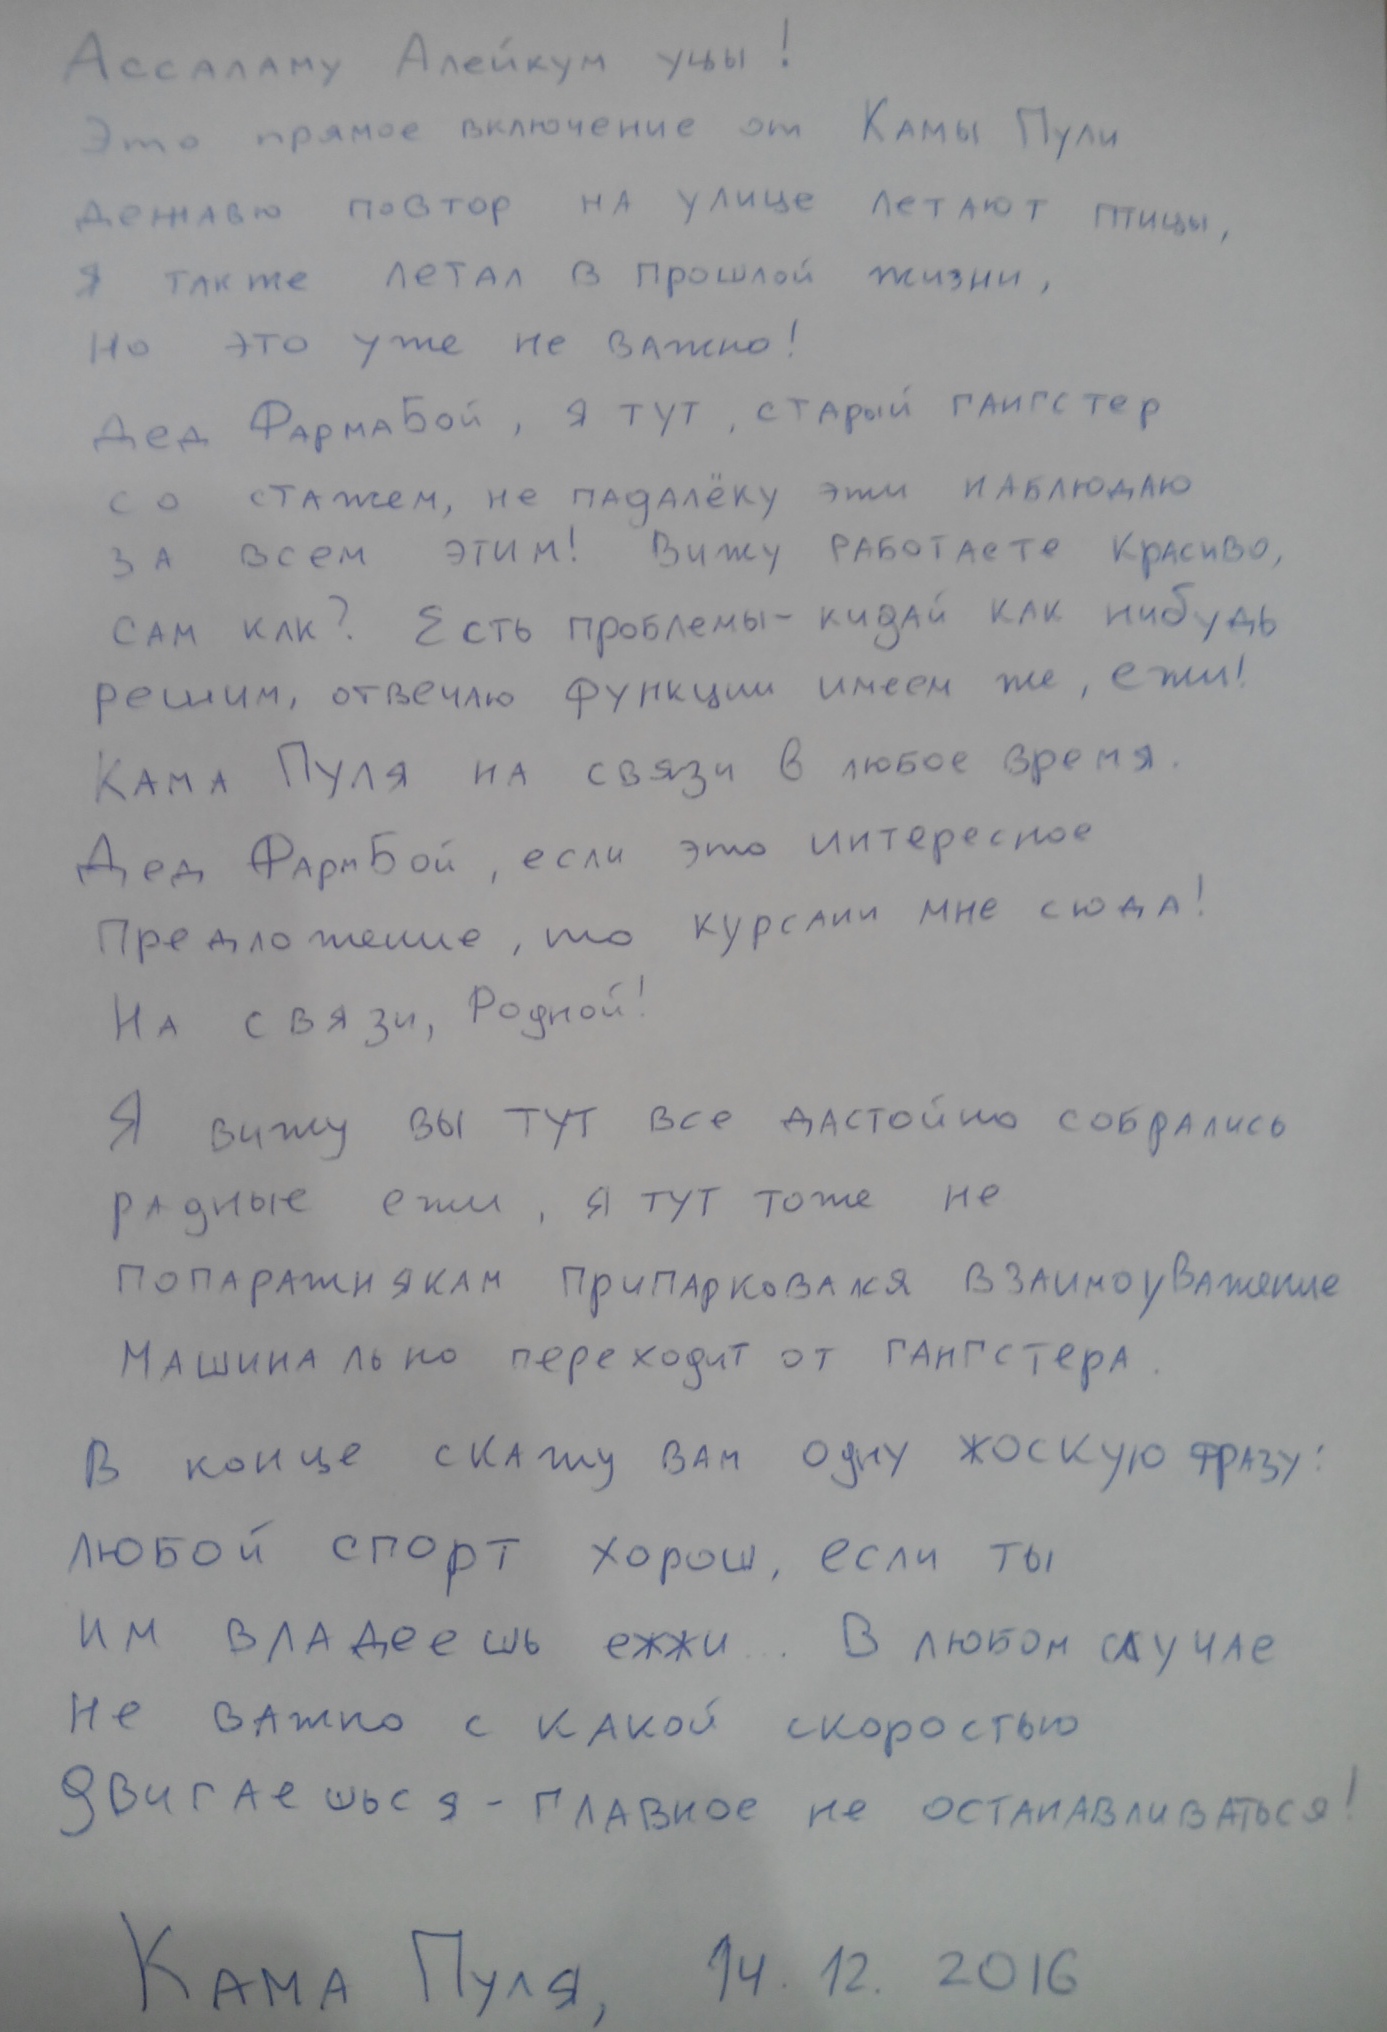 Ассаламу Алейкум уцы!
Это прямое включение от Камы Пули
дежавю повтор на улице летают птицы,
я также летал в прошлой жизни,
но это уже не важно!
Дед ФармаБой, я тут, старый гангстер
со стажем, не падалёку эжи наблюдаю
за всем этим! Вижу работаете красиво,
сам как? Есть проблемы - кидай как нибудь
решим, отвечаю функции имеем же, ежи!
Кама Пуля на связи в любое время.
Дед ФармБой, если это интересное
Предложение, то курсани мне сюда!
На связи, Родной!
Я вижу вы тут все дастойно собрались
радные ежи, я тут тоже не
попаражнякам припарковался взаимоуважение
машинально переходит от гангстера.
В конце скажу вам одну жоскую фразу:
любой спорт хорош, если ты
им владеешь ежжи... В любом случае
не важно с какой скоростью
двигаешься - главное не останавливаться!
Кама Пуля, 14.12.2016